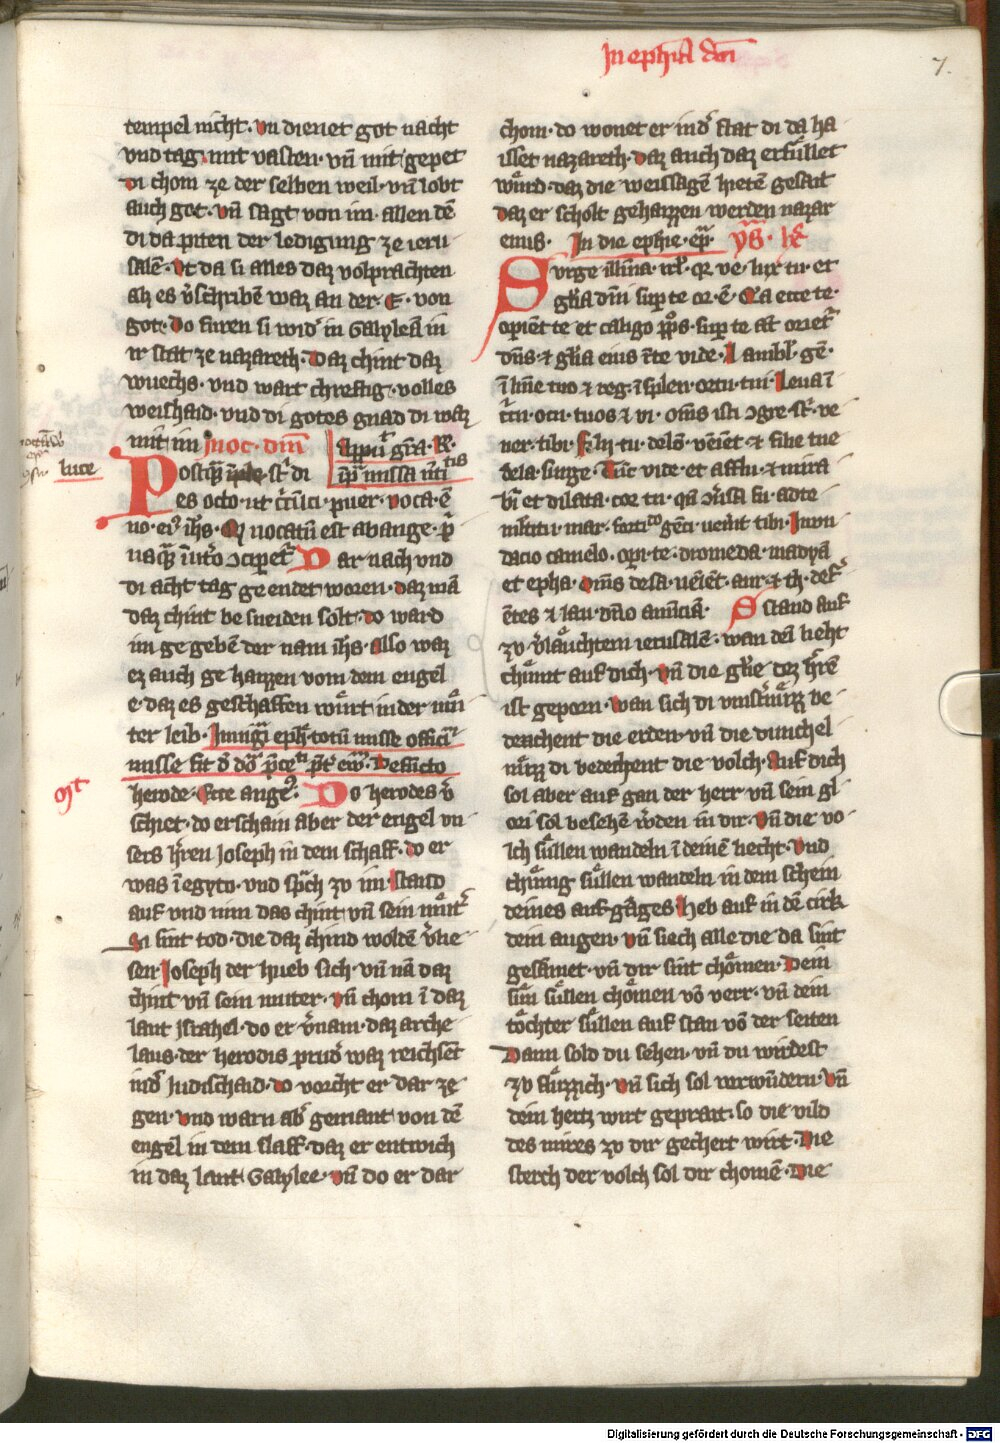 In eph̄ia dn̄i
7.
tempel nicht · vn dienet got nacht
vnd tag · mit vasten · vn̄ mit gepet
Di chom ze der selben weil · vn̄ lobt
auch got · vn̄ sagt von im · allen dē
di da piten der ledigung ze ieru
salē · Vt da si alles daz volprachten
als es v̄schribē waz an der E · von
got · Do furen si wid̾ in Galyleā in
ir stat ze nazareth · Daz chint daz
wuechs · vnd wart chreftig · volles
weishaid · vnd di gotes gnad di waz
mit im
In oct · dn̄i
Apparuit gr̄a · R̄
luce
Postq̄ʒ st̄ di
es octo · ut c̄cu̅ci · puer · voca · ē
no · ei᷒ ih̄s · Q̄ uocatū est ab ange · p̄
usq̄ʒ ī ut̾o ꝯcip̄et̾ Dar nach vnd
di acht tag geendet woren · daz mā
daz chint besneiden solt · do ward
im gegebē der nam ih̄s · Also waz
ez auch gehaizzen vom dem engel
e · daz es geschaffen wurt in der mů
ter leib · In uigl̄ia eph̄ · totū misse officiū
misse fit
herode · Ecce ange᷒ · Do herodes v̄
schiet · do erschain aber der engel vn
sers h̄ren Joseph in dem schaff · do er
was ī egypto · vnd sp̄ch zv im · Stand
auf vnd nim das chint vn̄ sein můt̾
Si sint tod · die daz chind woldē v̄lie
sen Joseph der hueb sich · vn̄ nā daz
chint vn̄ sein muter · vn̄ chom ī daz
lant Israhel · do er v̄nam · daz arche
laus · der herodis prud̾ waz reichsēt
in d̾ Judischaid · do vorcht er dar ze
gen · vnd warn ab̾ gemant von dē
engel in dem slaff · daz er entwich
in daz lant Galylee · vn̄ do er dar
chom · do wonet er in d̾ stat di da ha
isset nazareth · Daz auch daz erfullet
wůrd · daz die weissagē hietē gesait
Daz er scholt gehaizzen werden nazar
enus · In die ephie · ep̄r ys̄
Surge illūina · irl̄ · qr ve · lux tu · et
gl̄ia dn̄i sup te or · ē · Q̄a ecce te ·
opiēt te et caligo pp̄s · sup te aūt oriet̾
dn̄s · ⁊ gl̄ia eius ī te vide · Et ambl̄ · gē ·
ī lūie tuo ⁊ reg · ī splen · ortu · tui · Leua ī
c̄cu · ocu · tuos ⁊ vi · om̄s isti ꝯgre · st̄ · ve
ner · tibi · Filii tui de lo̅g · veniēt ⁊ filie tue
de la · surge · Tūc vide · et afflu · ⁊ mira
bi̅ et dilata · cor tu · qn̄ ꝯv̄sa fu · ad te
ml̄titu · mar · forti᷒ gēci · uen̄it tibi · Inun
dacio camelo · opi · te · dromeda · madyā
et epha · Om̄s de sa · ueīet · aur · ⁊ th · def̾
ētes ⁊ lau · dn̄o anūciā · Stand auf
zv v̄lauchtem ierusalē · wan dein lieht
chůmt auf dich · vn̄ die gl̄rie dez h̄rē
ist geporn · Wan sich di vinst̾nůzz be
dekchent die erden · vn̄ die dunchel
nůzz di bedechent die volch · Auf dich
sol aber auf gan der herr vn̄ sein gl
ori sol besehē w̄den in dir · Vn̄ die vo
lch sůllen wandeln ī deinē liecht · Vnd
chunig sůllen wandeln in dem schein
deines aufgāges · Heb auf in dē cirk
dein augen · vn̄ siech alle die da sint
gesāmet · vn̄ dir sint chōmen · Dein
sůn sůllen chōmen vō verr · vn̄ dein
tōchter sůllen auf stan vō der seiten
Dann sold du sehen · vn̄ du wirdest
zv fluzzich · vn̄ sich sol verwūdern · vn̄
dein hertz wirt geprait · so die vild
des mires zv dir gechert wirt · Die
sterch der volch sol dir chomē · Die
Digitalisierung gefördert durch die Deutsche Forschungsgemeinschaft - DFG